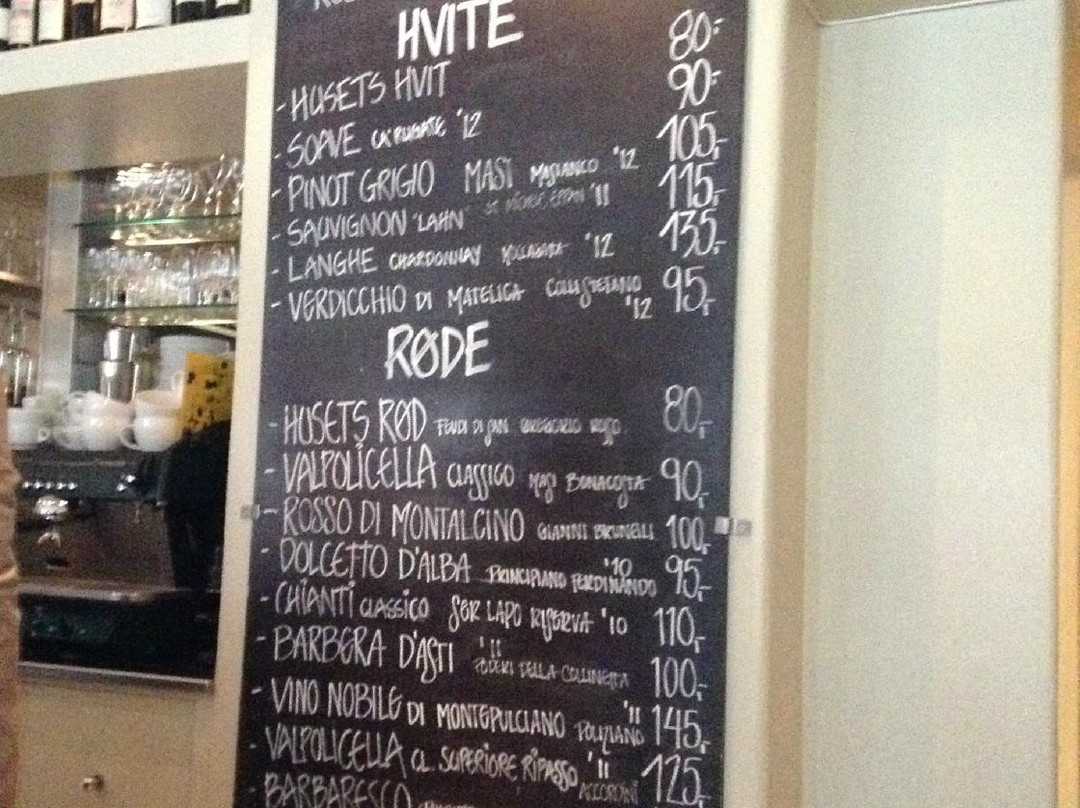 HVITE
- HUSETS HVIT 80,-
- SOAVE CA'RUGATE '12 90,-
- PINOT GRIGIO MASI MASIANCO '12 105,-
- SAUVIGNON "LAHN" ST MICHAEL EPPAN '11 115,-
- LANGHE CHARDONNAY '12 135,-
- VERDICCHIO DI MATELICA COLLESTEFANO '12 95,-
RØDE
- HUSETS RØD FEUDI DI SAN GREGORIO ROSSO 80,-
- VALPOLICELLA CLASSICO MASI BONACOSTA 90,-
- ROSSO DI MONTALCINO GIANNI BRUNELLI 100,-
- DOLCETTO D'ALBA '10 PRINCIPIANO FERDINANDO 95,-
- CHIANTI CLASSICO SER LAPO RISERVA '10 110,-
- BARBERA D'ASTI '11 PODERI DELLA COLLINETTA 100,-
- VINO NOBILE DI MONTEPULCIANO '11 POLIZIANO 145,-
- VALPOLICELLA CL. SUPERIORE RIPASSO '11 ACCORDINI 125,-
- BARBARESCO